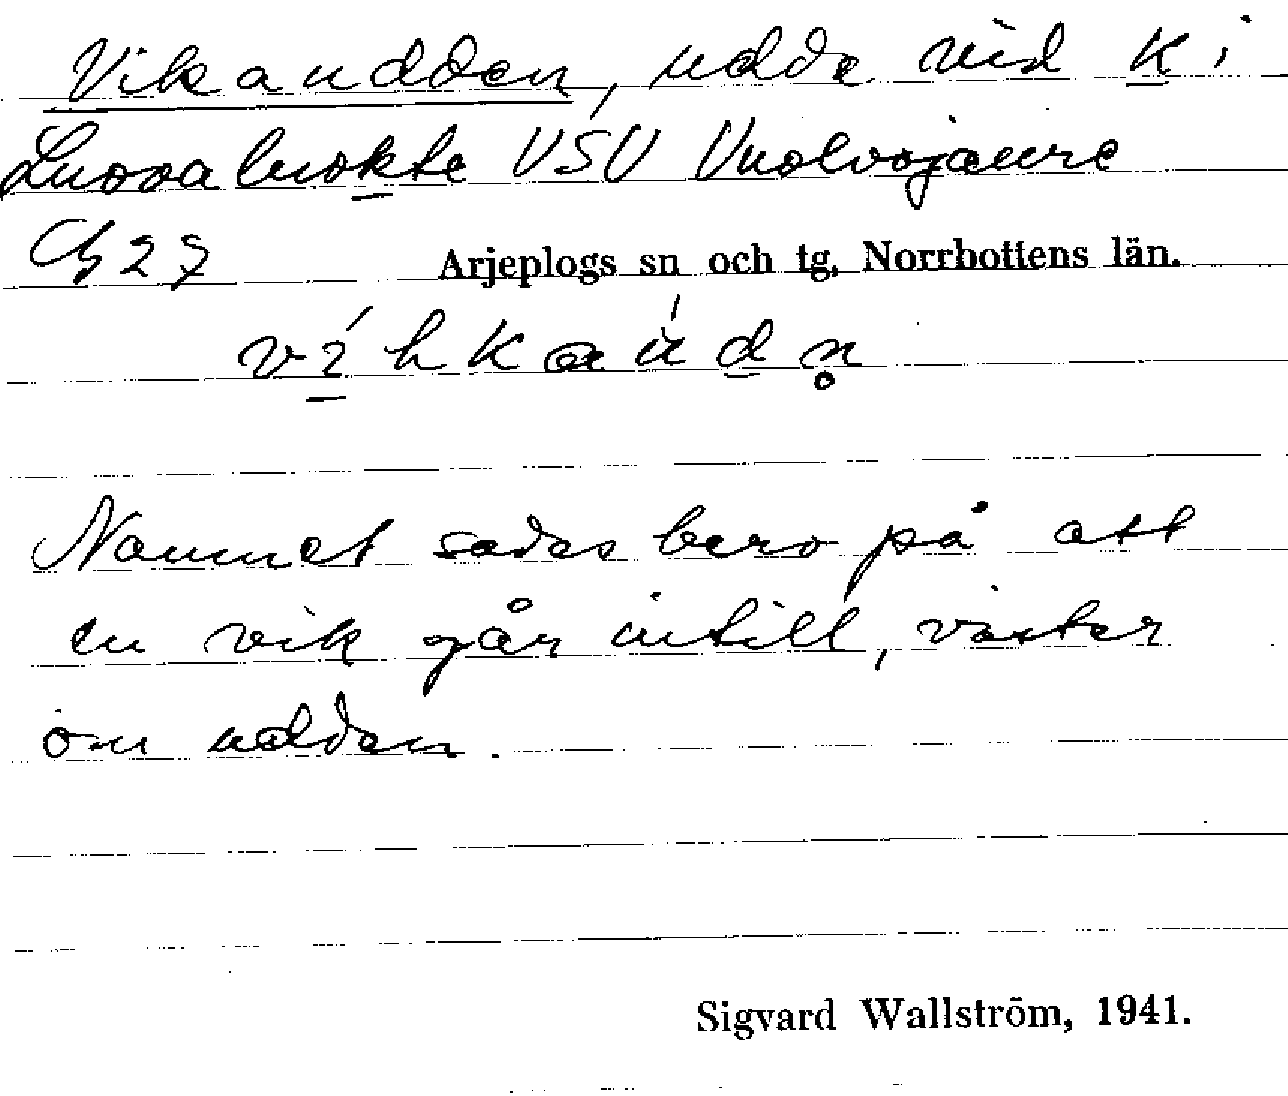 Vikaudden, udde vid k i
Luovaluokte VSV Vuolvojaure
G27 Arjeplogs sn och tg. Norrbottens län.
víhkaúdn̥
Namnet sades bero på att
en vik går intill, väster
om udden.
Sigvard Wallström, 1941.